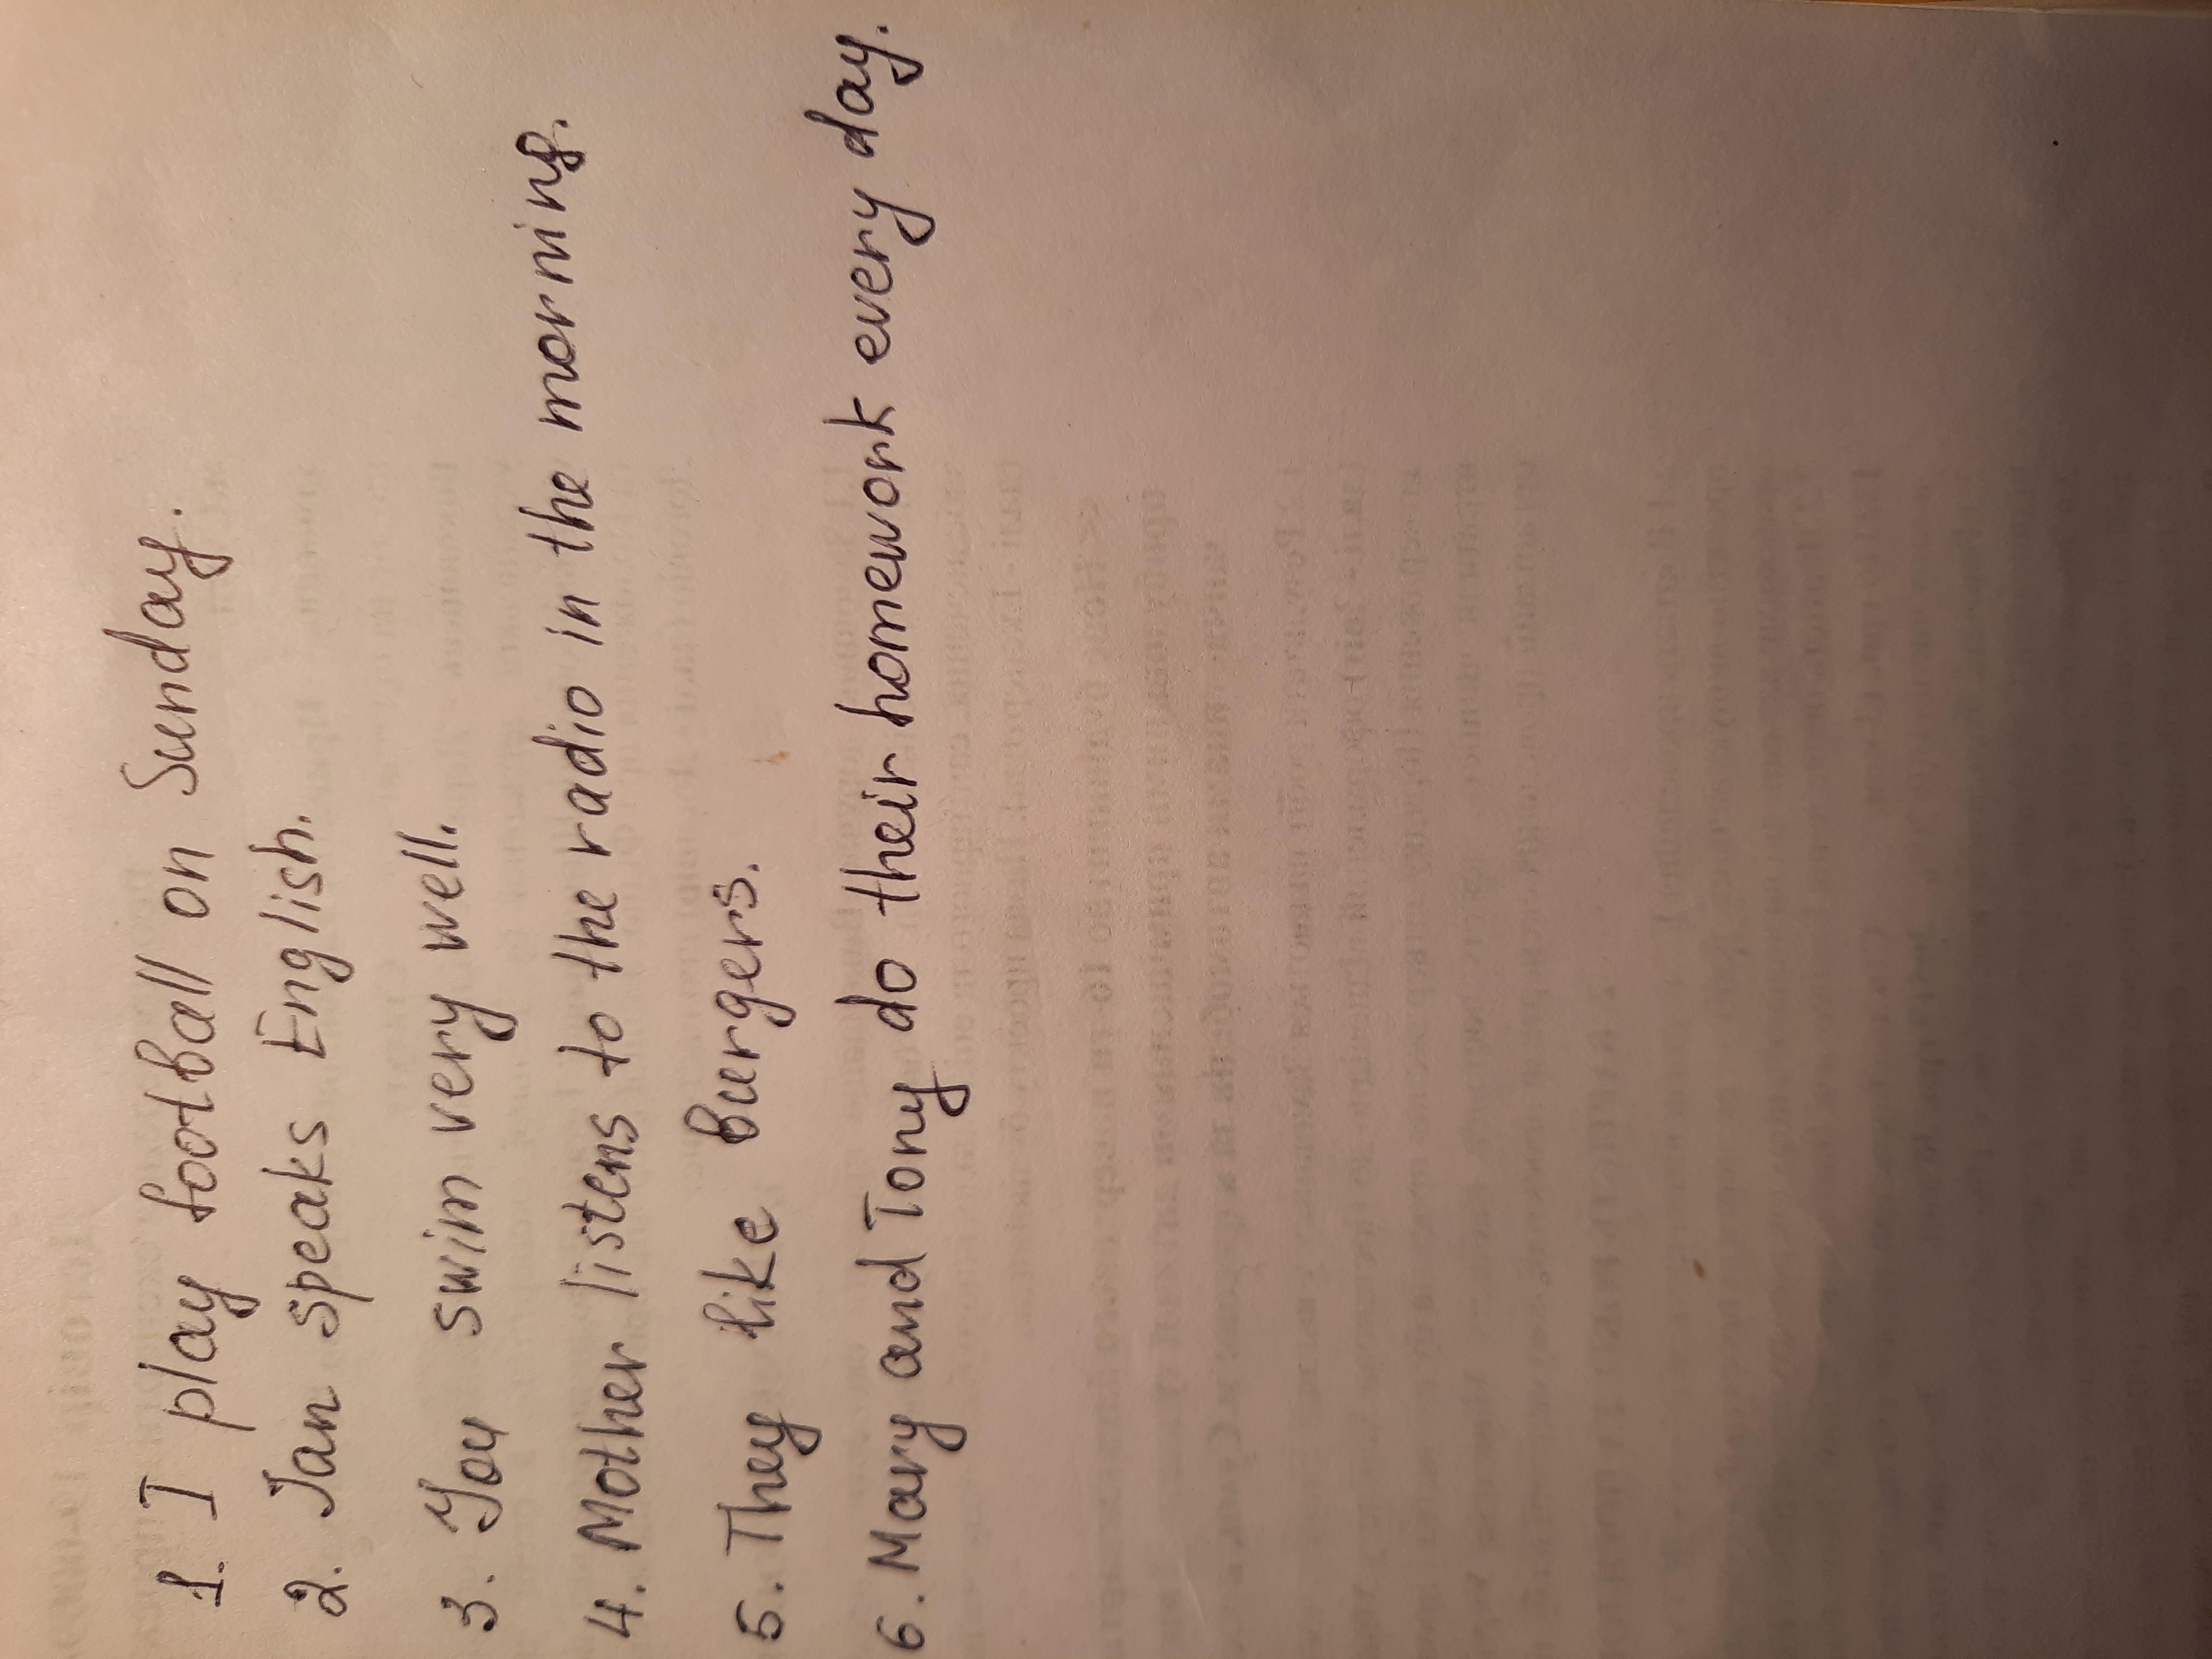 1. I play football on Sunday.
2. Jan speaks English.
3. You swim very well.
4. Mother listens to the radio in the morning.
5. They like burgers.
6. Mary and Tony do their homework every day.